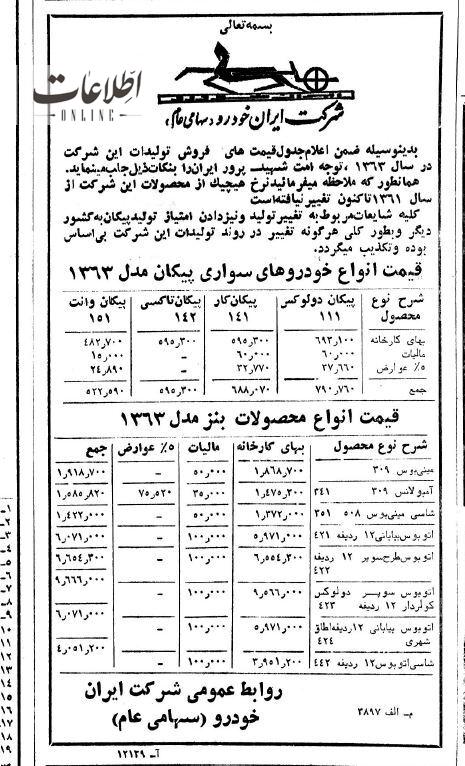 بسمه‌تعالی
اطلاعات
ONLINE
شرکت ایران خودرو «سهامی عام»
بدینوسیله ضمن اعلام جدول قیمت های فروش تولیدات این شرکت
در سال ۱۳۶۳ ، توجه امت شهید پرور ایران را بنکات ذیل جلب مینماید.
همانطور که ملاحظه میفرمائید نرخ هیچیک از محصولات این شرکت از
سال ۱۳۶۱ تاکنون تغییر نیافته است
کلیه شایعات مربوط به تغییر تولید و نیز دادن امتیاز تولید پیکان به کشور
دیگر و بطور کلی هرگونه تغییر در روند تولیدات این شرکت بی‌اساس
بوده و تکذیب میگردد.
قیمت انواع خودروهای سواری پیکان مدل ۱۳۶۳
شرح نوع محصول پیکان دولوکس ۱۱۱ پیکان کار ۱۴۱ پیکان تاکسی ۱۴۲ پیکان وانت ۱۵۱
بهای کارخانه ۶۹۳٫۱۰۰ ۵۹۵٫۳۰۰ ۵۹۵٫۳۰۰ ۴۸۲٫۷۰۰
مالیات ۶۰٫۰۰۰ ۶۰٫۰۰۰ – ۱۵٫۰۰۰
۵٪ عوارض ۳۷٫۶۶۰ ۳۲٫۷۷۰ – ۲۴٫۸۹۰
جمع ۷۹۰٫۷۶۰ ۶۸۸٫۰۷۰ ۵۹۵٫۳۰۰ ۵۲۲٫۵۹۰
قیمت انواع محصولات بنز مدل ۱۳۶۳
شرح نوع محصول بهای کارخانه مالیات ۵٪ عوارض جمع
مینی‌بوس ۳۰۹ ۱٫۸۶۸٫۷۰۰ ۵۰٫۰۰۰ – ۱٫۹۱۸٫۷۰۰
آمبولانس ۳۰۹ ۳۴۱ ۱٫۴۷۵٫۳۰۰ ۳۵٫۰۰۰ ۷۵٫۵۲۰ ۱٫۵۸۵٫۸۲۰
شاسی مینی‌بوس ۵۰۸ ۳۵۱ ۱٫۳۷۲٫۰۰۰ ۵۰٫۰۰۰ – ۱٫۴۲۲٫۰۰۰
اتوبوس بیابانی ۱۲ ردیفه ۴۲۱ ۵٫۹۷۱٫۰۰۰ ۱۰۰٫۰۰۰ – ۶٫۰۷۱٫۰۰۰
اتوبوس طرح سوپر ۱۲ ردیفه ۴۲۲ ۶٫۵۵۴٫۳۰۰ ۱۰۰٫۰۰۰ – ۶٫۶۵۴٫۳۰۰
اتوبوس سوپر دولوکس کولردار ۱۲ ردیفه ۴۲۳ ۹٫۵۶۶٫۰۰۰ ۱۰۰٫۰۰۰ – ۹٫۶۶۶٫۰۰۰
اتوبوس بیابانی ۱۲ ردیفه اطاق شهری ۴۲۴ ۵٫۹۷۱٫۰۰۰ ۱۰۰٫۰۰۰ – ۶٫۰۷۱٫۰۰۰
شاسی اتوبوس ۱۲ ردیفه ۴۴۲ ۳٫۹۵۱٫۲۰۰ ۱۰۰٫۰۰۰ – ۴٫۰۵۱٫۲۰۰
روابط عمومی شرکت ایران
خودرو (سهامی عام)
م‌ـ الف ۳۸۹۷
آـ ۱۲۱۲۹